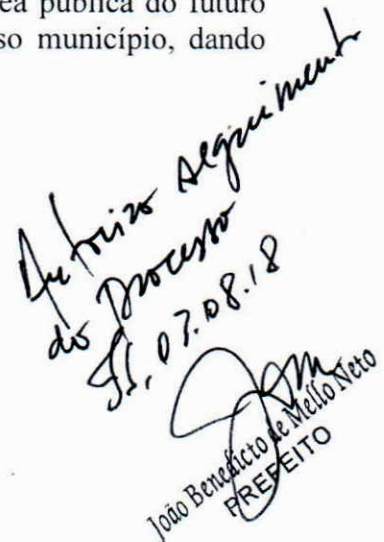 ea pública do futuro
so município, dando
Autorizo seguimento
do processo
07.08.18
João Benedicto de Mello Neto
PREFEITO